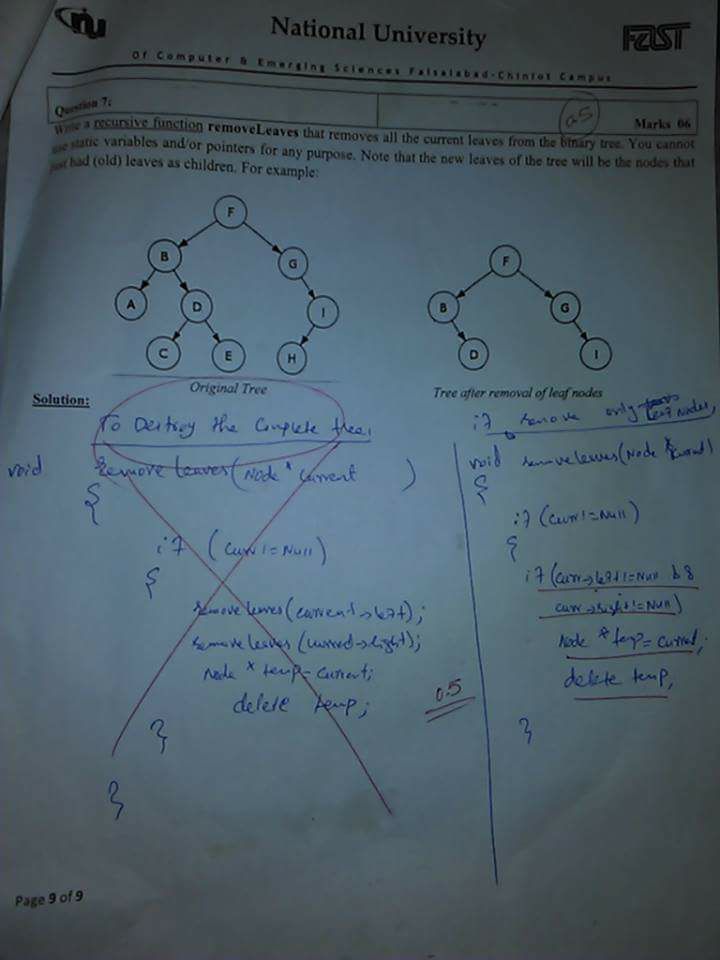 nu
National University
FAST
Of Computer & Emerging Sciences Faisalabad-Chiniot Campus
Question 7:
0.5
Marks 06
Write a recursive function removeLeaves that removes all the current leaves from the binary tree. You cannot
use static variables and/or pointers for any purpose. Note that the new leaves of the tree will be the nodes that
just had (old) leaves as children. For example:
F
B
G
A
D
I
C
E
H
Original Tree
F
B
G
D
I
Tree after removal of leaf nodes
Solution:
To Destroy the Complete tree.
void remove leaves(Node * current)
{
if (curr != Null)
{
remove leaves(current->left);
remove leaves(current->right);
Node * temp = current;
delete temp;
}
}
0.5
if remove only leaf nodes,
void remove leaves(Node * current)
{
if (curr != Null)
{
if (curr->left != Null &&
curr->right != Null)
Node * temp = current;
delete temp;
}
Page 9 of 9